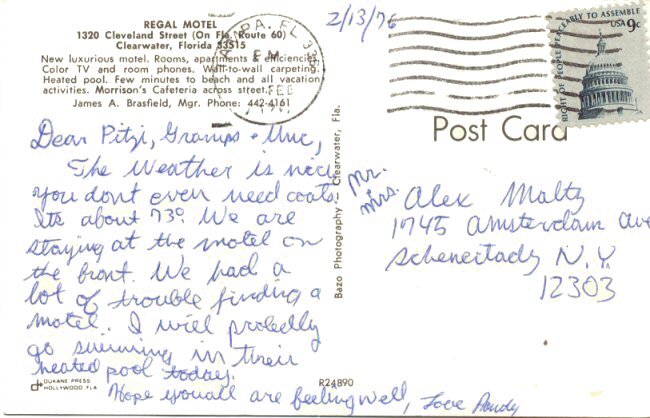 REGAL MOTEL
1320 Cleveland Street (On Fla. Route 60)
Clearwater, Florida 33515
New luxurious motel. Rooms, apartments & efficiencies.
Color TV and room phones. Wall-to-wall carpeting.
Heated pool. Few minutes to beach and all vacation
activities. Morrison's Cafeteria across street.
James A. Brasfield, Mgr. Phone: 442-4161
2/13/76
TAMPA, FL 336
PM
FEB
RIGHT OF PEOPLE PEACEABLY TO ASSEMBLE
USA 9c
Post Card
Dear Pitzi, Gramps + Unc,
The Weather is nice
you dont even need coats.
Its about 73°. We are
staying at the motel on
the front. We had a
lot of trouble finding a
motel. I will probedly
go swimming in their
heated pool today.
Hope you all are feeling well, Love Randy
Bazo Photography — Clearwater, Fla.
Mr.
+ Mrs. Alex Maltz
1745 Amsterdam Ave
Schenectady N.Y.
12303
DUKANE PRESS
HOLLYWOOD FLA
R24890